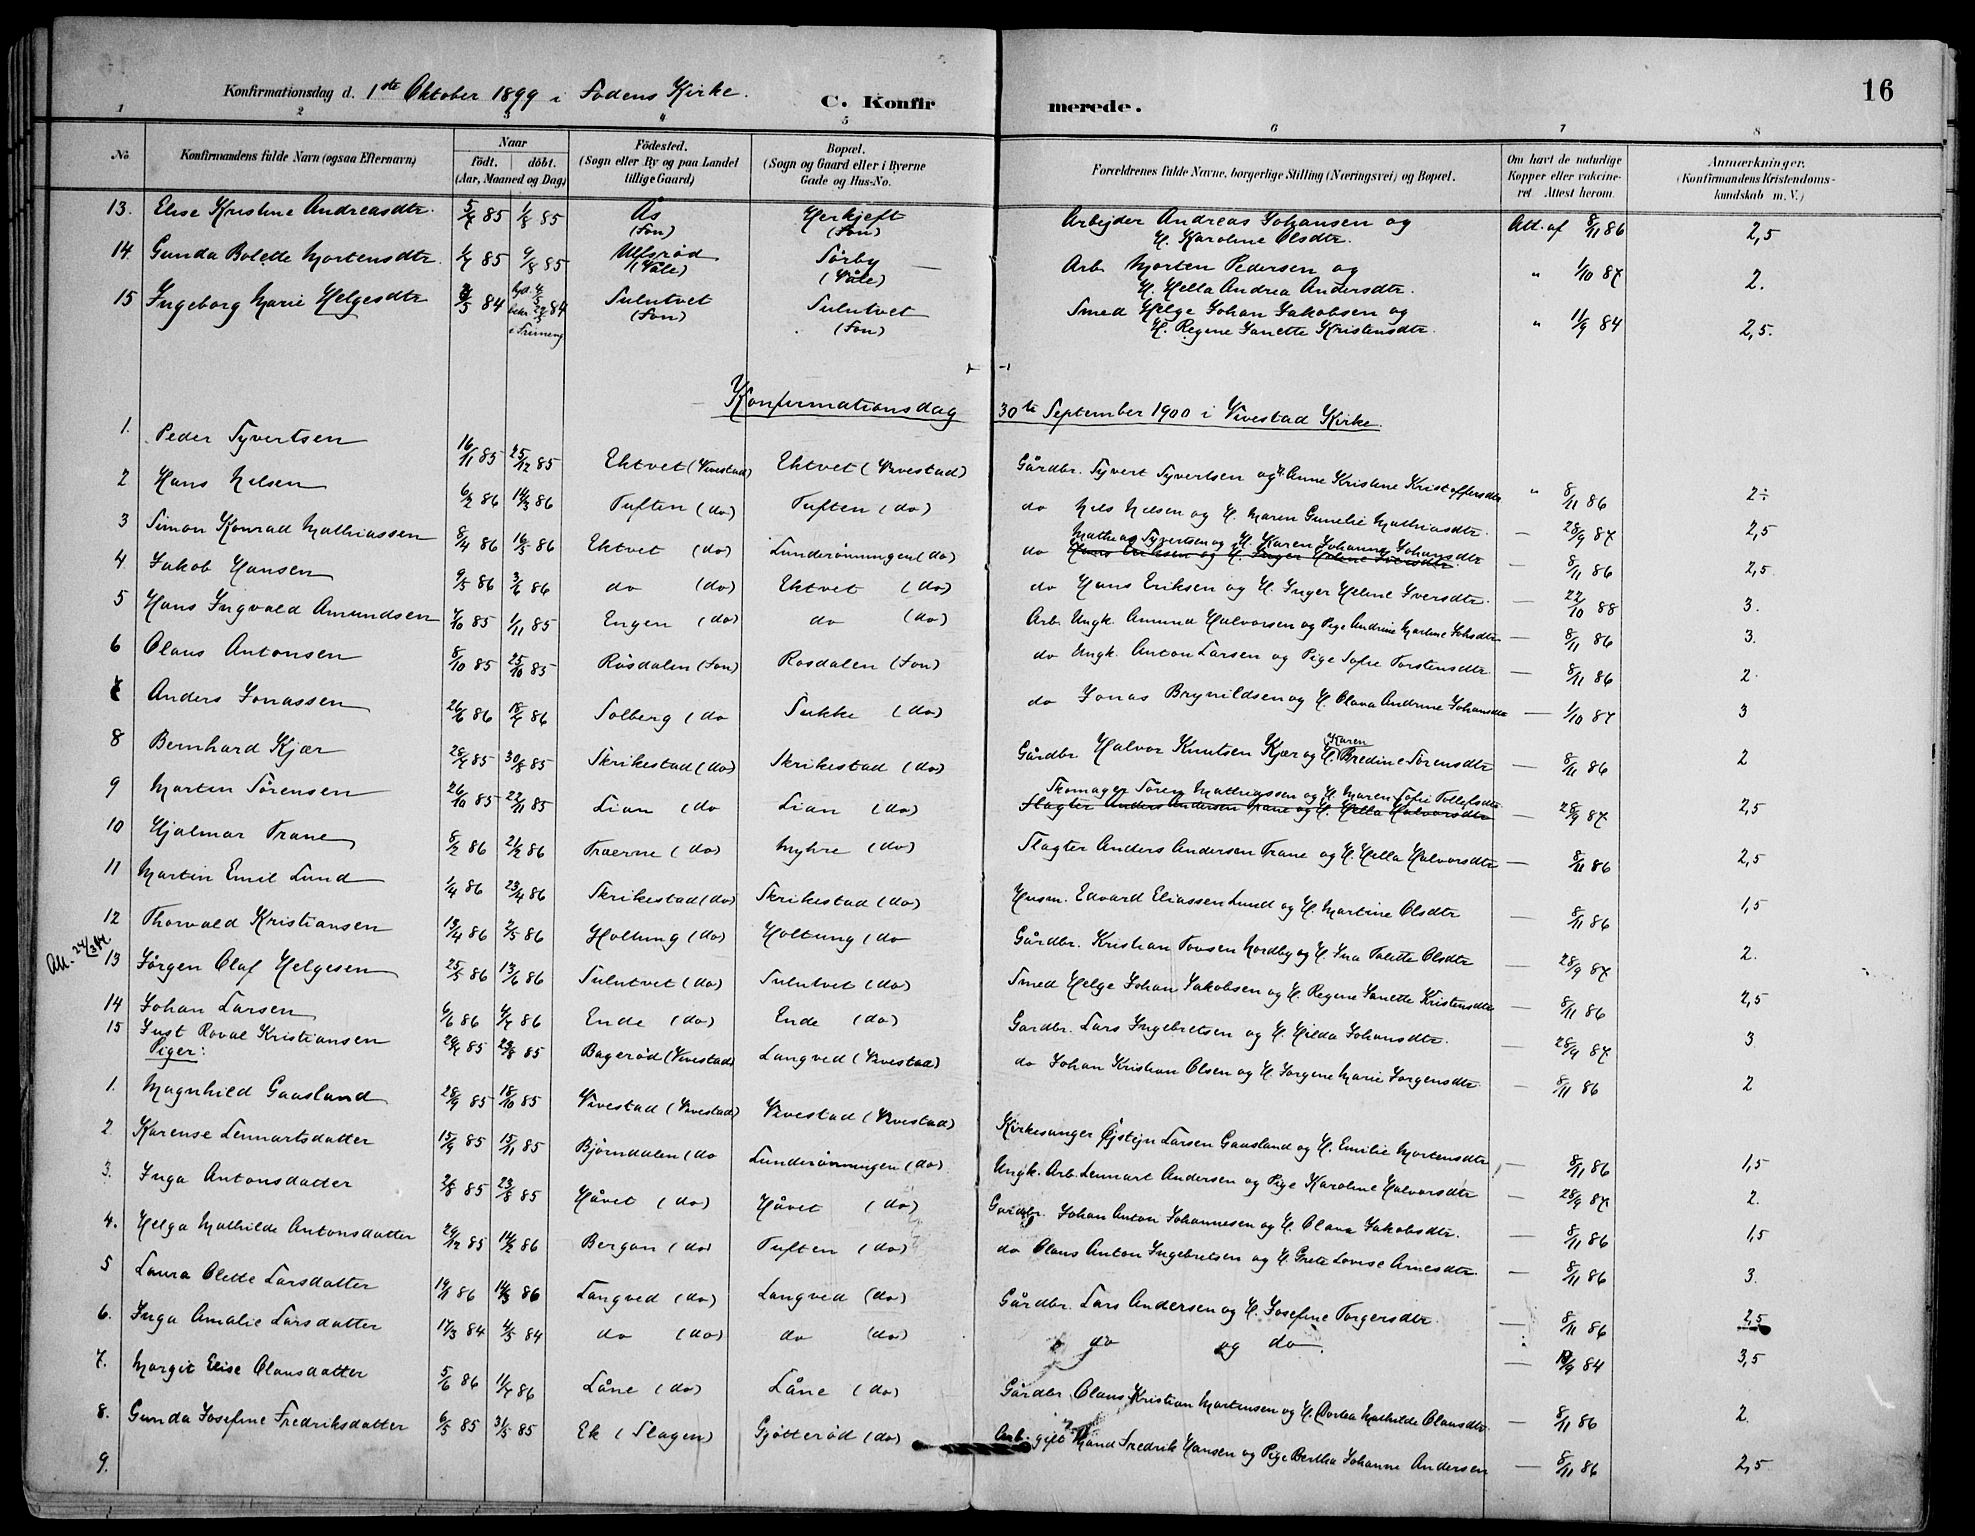 16
Konfirmationsdag d. 1ste Oktober 1899 i Fodens Kirke. C. Konfirmerede.
1 2 3 4 5 6 7 8
No Konfirmandens fulde Navn (ogsaa Efternavn) Naar födt. döbt. (Aar, Maaned og Dag) Födested. (Sogn eller By og paa Landet tillige Gaard) Bopæl. (Sogn og Gaard eller i Byerne Gade og Hus-No. Forældrenes fulde Navne, borgerlige Stilling (Næringsvei) og Bopæl. Om havt de naturlige Kopper eller vakcineret. Attest herom. Anmærkninger, (Konfirmandens Kristendomskundskab m. V.)
13. Elise Kristine Andreasdtr. 5/7 85 1/8 85 Ås (Fon) Herkjeft (Fon) Arbejder Andreas Johansen og H. Karoline Olsdtr. Att. af 8/11 86 2,5
14. Gunda Bolette Mortensdtr. 1/7 85 9/8 85 Ulfsrød (Våle) Sørby (Våle) Arb. Morten Pedersen og H. Hella Andrea Andersdtr. " 1/10 87 2.
15 Ingeborg Marie Helgesdtr 84 84 Sulutvet (Fon) Sulutvet (Fon) Smed Helge Johan Jakobsen og H. Regine Janette Kristensdtr. " 11/9 84 2,5.
Konfirmationsdag 30te September 1900 i Vivestad Kirke.
1. Peder Syvertsen 16/11 85 25/12 85 Ektvet (Vivestad) Ektvet (Vivestad) Gårdbr. Syvert Syvertsen og H. Anne Kristine Kristoffersdtr " 8/11 86 2÷
2 Hans Nilsen 6/2 86 14/3 86 Tuften (do) Tuften (do) do Nils Nilsen og H. Maren Gunelie Mathiasdtr. — 28/9 87 2,5
3 Simon Konrad Mathiassen 8/4 86 16/5 86 Ektvet (do) Lunderønningen (do) do Mathias Syvertsen og H. Karen Johanne Johansdtr — 8/11 86 2,5
4. Jakob Hansen 9/5 86 3/6 86 do (do) Ektvet (do) do Hans Eriksen og H. Inger Helene Iversdtr. — 22/10 88 3.
5 Hans Ingvald Amundsen 7/10 85 1/11 85 Engen (do) do (do) Arb. Ungk. Amund Halvorsen og Pige Andrine Martine Johsdtr — 8/11 86 3.
6 Olaus Antonsen 8/10 85 25/10 85 Rosdalen (Fon) Rosdalen (Fon) do Ungk. Anton Larsen og Pige Sofie Torstensdtr. — 8/11 86 2
7 Anders Jonassen 26/6 86 18/7 86 Solberg (do Sukke (do) do Jonas Brynildsen og H. Olava Andrine Johansdtr — 1/10 87 3
8 Bernhard Kjær 28/7 85 30/8 85 Skrikestad (do) Skrikestad (do) Gårdbr. Halvor Knutsen Kjær og H. Karen Bredine Sørensdtr — 8/11 86 2
9 Martin Sørensen 26/10 85 22/11 85 Lian (do Lian (do) Skomager Søren Mathiassen og H. Maren Sofie Tollefsdtr — 28/9 87 2,5
10 Hjalmar Trane 8/2 86 21/2 86 Traerne (do) Myhre (do) Slagter Anders Andersen Trane og H. Hella Halvorsdtr — 8/11 86 2,5
11 Martin Emil Lund 1/4 86 23/4 86 Skrikestad (do) Skrikestad (do) Husm. Edvard Eliassen Lund og H. Martine Olsdtr — 8/11 86 1,5
12 Thorvald Kristiansen 13/4 86 2/5 86 Holtung (do) Holtung (do Gårdbr. Kristian Tovsen Nordby og H. Ina Talette Olsdtr — 28/9 87 2.
Att. 24/3
13 Jørgen Olaf Helgesen 25/5 86 13/6 86 Sulutvet (do) Sulutvet (do) Smed Helge Johan Jakobsen og H. Regine Janette Kristensdtr — 8/11 86 2,5
14 Johan Larsen 6/6 86 4/7 86 Ende (do) Ende (do) Gårdbr. Lars Ingebretsen og H. Hilda Johansdtr. — 28/9 87 3
15 Just Roval Kristiansen 29/7 85 23/8 85 Bagerød (Vivestad) Langved (Vivestad) do Johan Kristian Olsen og H. Jorgine Marie Jorgensdtr — 8/11 86 2
Piger:
1. Magnhild Gaasland 28/9 85 18/10 85 Vivestad (Vivestad) Vivestad (Vivestad) Kirkesanger Øistejn Larsen Gaasland og H. Emilie Mortensdtr — 8/11 86 1,5
2. Karense Lennartsdatter 15/9 85 15/11 85 Bjørndalen (do Lunderønningen (do) Ungk. Arb. Lennart Andersen og Pige Karoline Halvorsdtr — 28/9 87 2.
3. Inga Antonsdatter 2/8 85 23/8 85 Håvet (do) Håvet (do) Gårdbr. Johan Anton Johannesen og H. Olava Jakobsdtr. — 8/11 86 1,5
4. Helga Mathilde Antonsdatter 29/12 85 14/2 86 Bergan (do) Tuften (do) do Olaus Anton Ingebretsen og H. Grete Lovise Arnesdtr. — 8/11 86 3.
5 Laura Olette Larsdatter 19/1 86 14/3 86 Langved (do) Langved (do) Gårdbr. Lars Andersen og H. Josefine Torgersdtr. — 8/11 86 2,5
6. Inga Amalie Larsdatter 17/3 84 4/5 84 do (do) do (do) do og do. — 84 3,5
7. Margit Elise Olausdatter 5/6 86 11/7 86 Låne (do) Låne (do) Gårdbr Olaus Kristian Martinsen og H. Dorthea Mathilde Olausdtr — 8/11 86 2.
8. Gunda Josefine Fredriksdatter 6/5 85 31/5 85 Ek (Slagen) Gjøtterød (do) Arb. gift Mand Fredrik Hansen og Pige Bertha Johanne Andersen — 8/11 86 2,5
9.